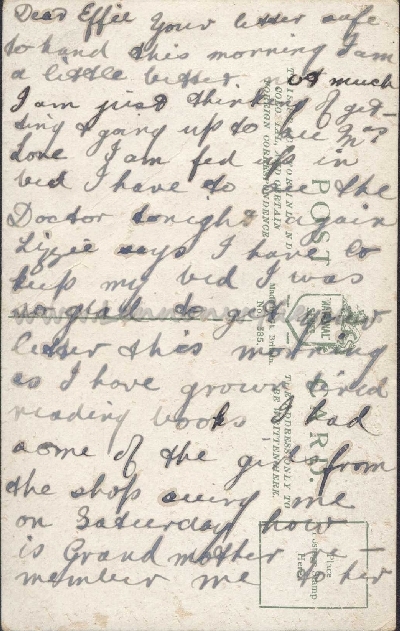 Dear Effie Your letter safe
to hand this morning I am
a little better not much
I am just thinking of get-
ting & going up to see Mr
Love I am fed up in
bed I have to see the
Doctor tonight again
Lizzie says I have to
keep my bed I was
so glad to get your
letter this morning
as I have grown tired
reading books I had
some of the girls from
the shop seeing me
on Saturday how
is Grandmother re-
member me to her
POST CARD.
THE ADDRESS ONLY TO
BE WRITTEN HERE.
NATIONAL
SERIES